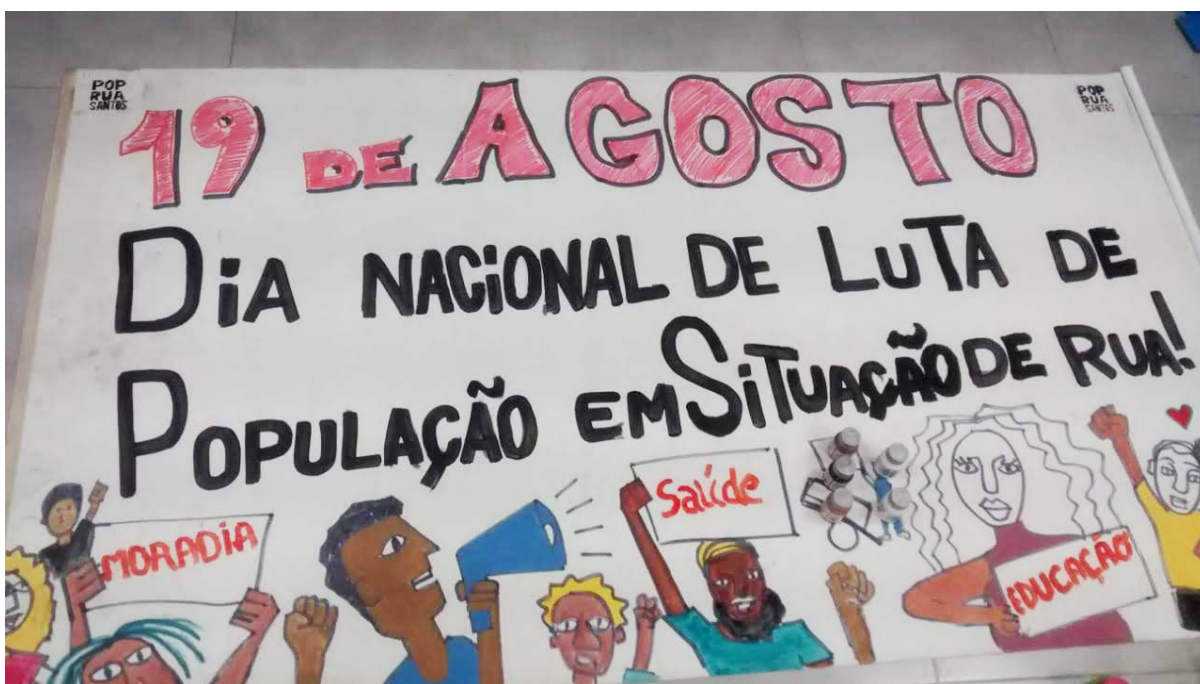 POP
RUA
SANTOS
POP
RUA
SANTOS
19 DE AGOSTO
DiA NACiONAL DE LuTA DE
POPULAÇÃO EM SiTUAÇÃO DE RUA!
MORADiA
Saúde
EDUCAÇÃO